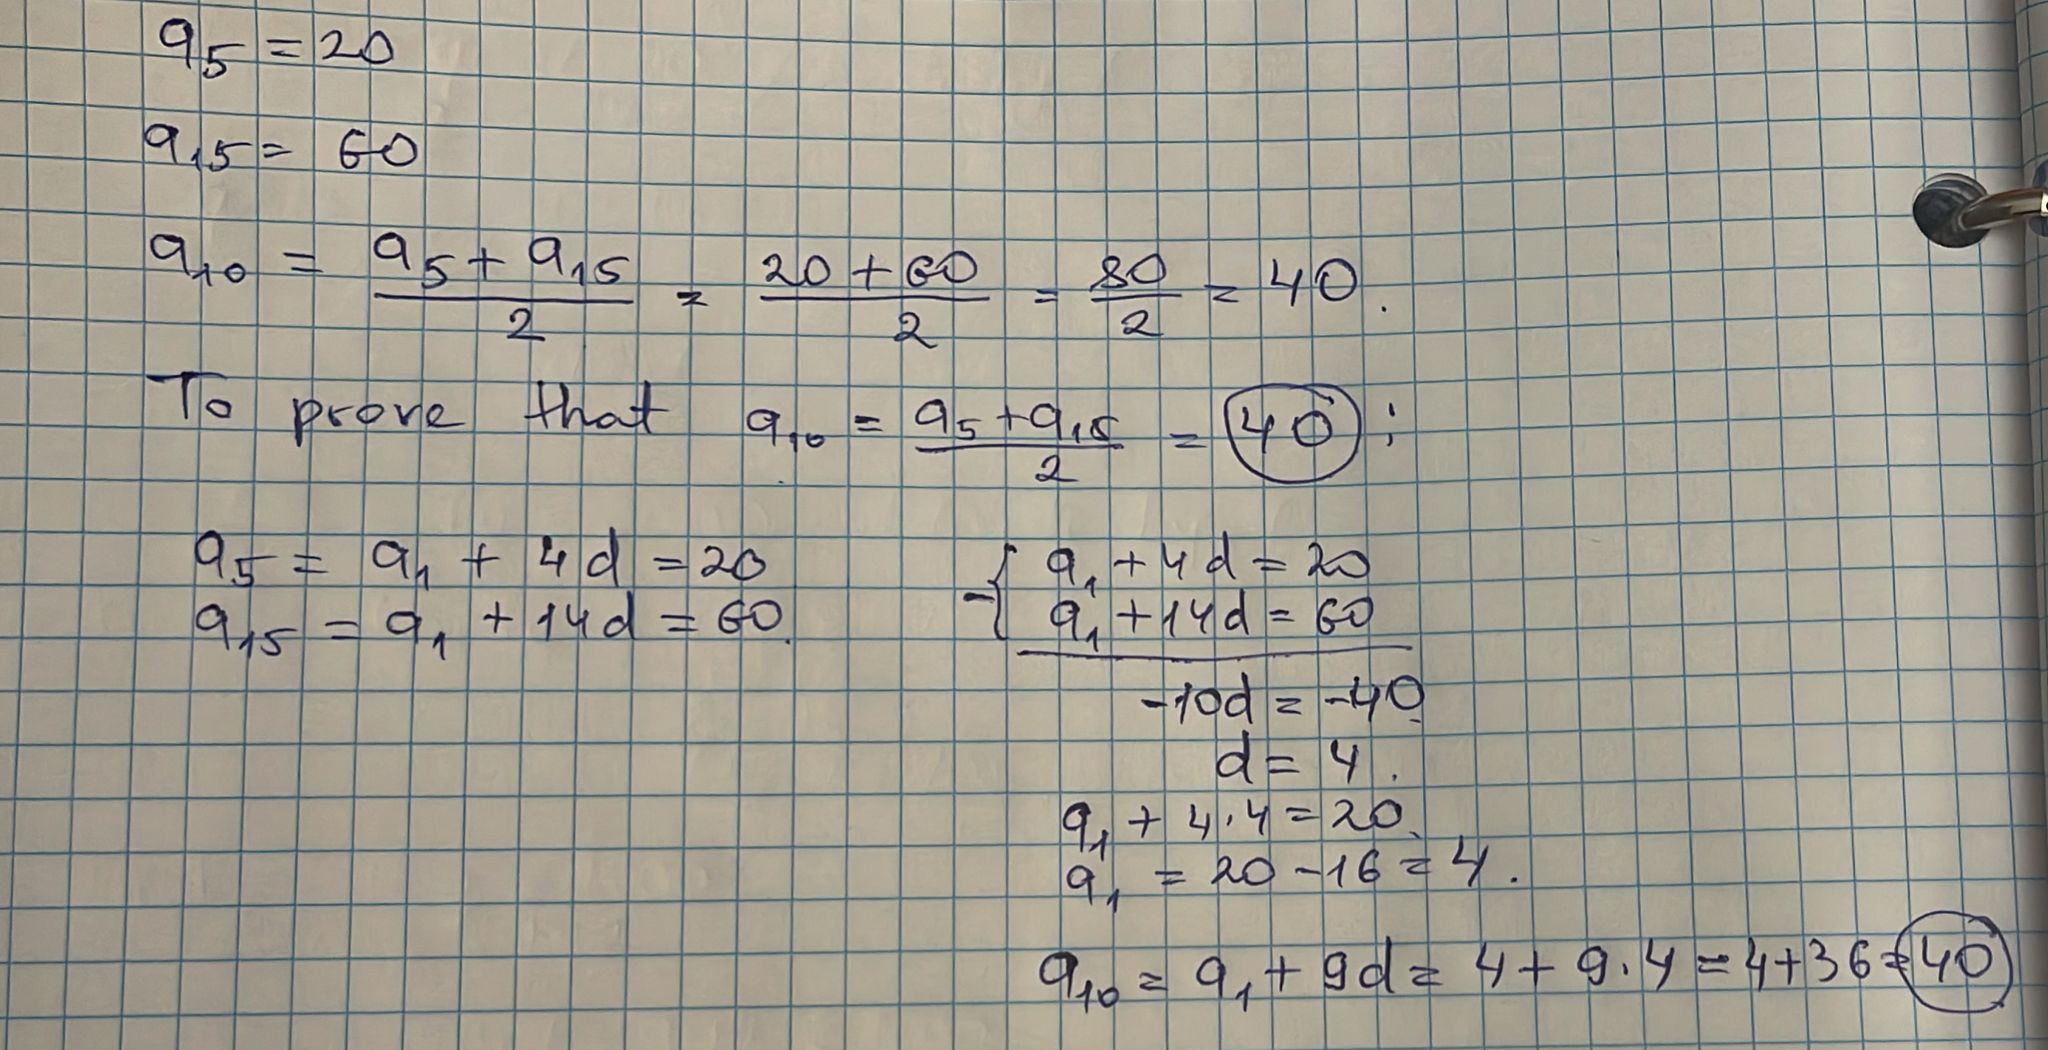 a₅ = 20
a₁₅ = 60
a₁₀ = (a₅ + a₁₅)/2 = (20 + 60)/2 = 80/2 = 40.
To prove that a₁₀ = (a₅ + a₁₅)/2 = 40 :
a₅ = a₁ + 4d = 20
a₁₅ = a₁ + 14d = 60.
- { a₁ + 4d = 20
a₁ + 14d = 60
-10d = -40
d = 4.
a₁ + 4·4 = 20.
a₁ = 20 - 16 = 4.
a₁₀ = a₁ + 9d = 4 + 9·4 = 4 + 36 = 40